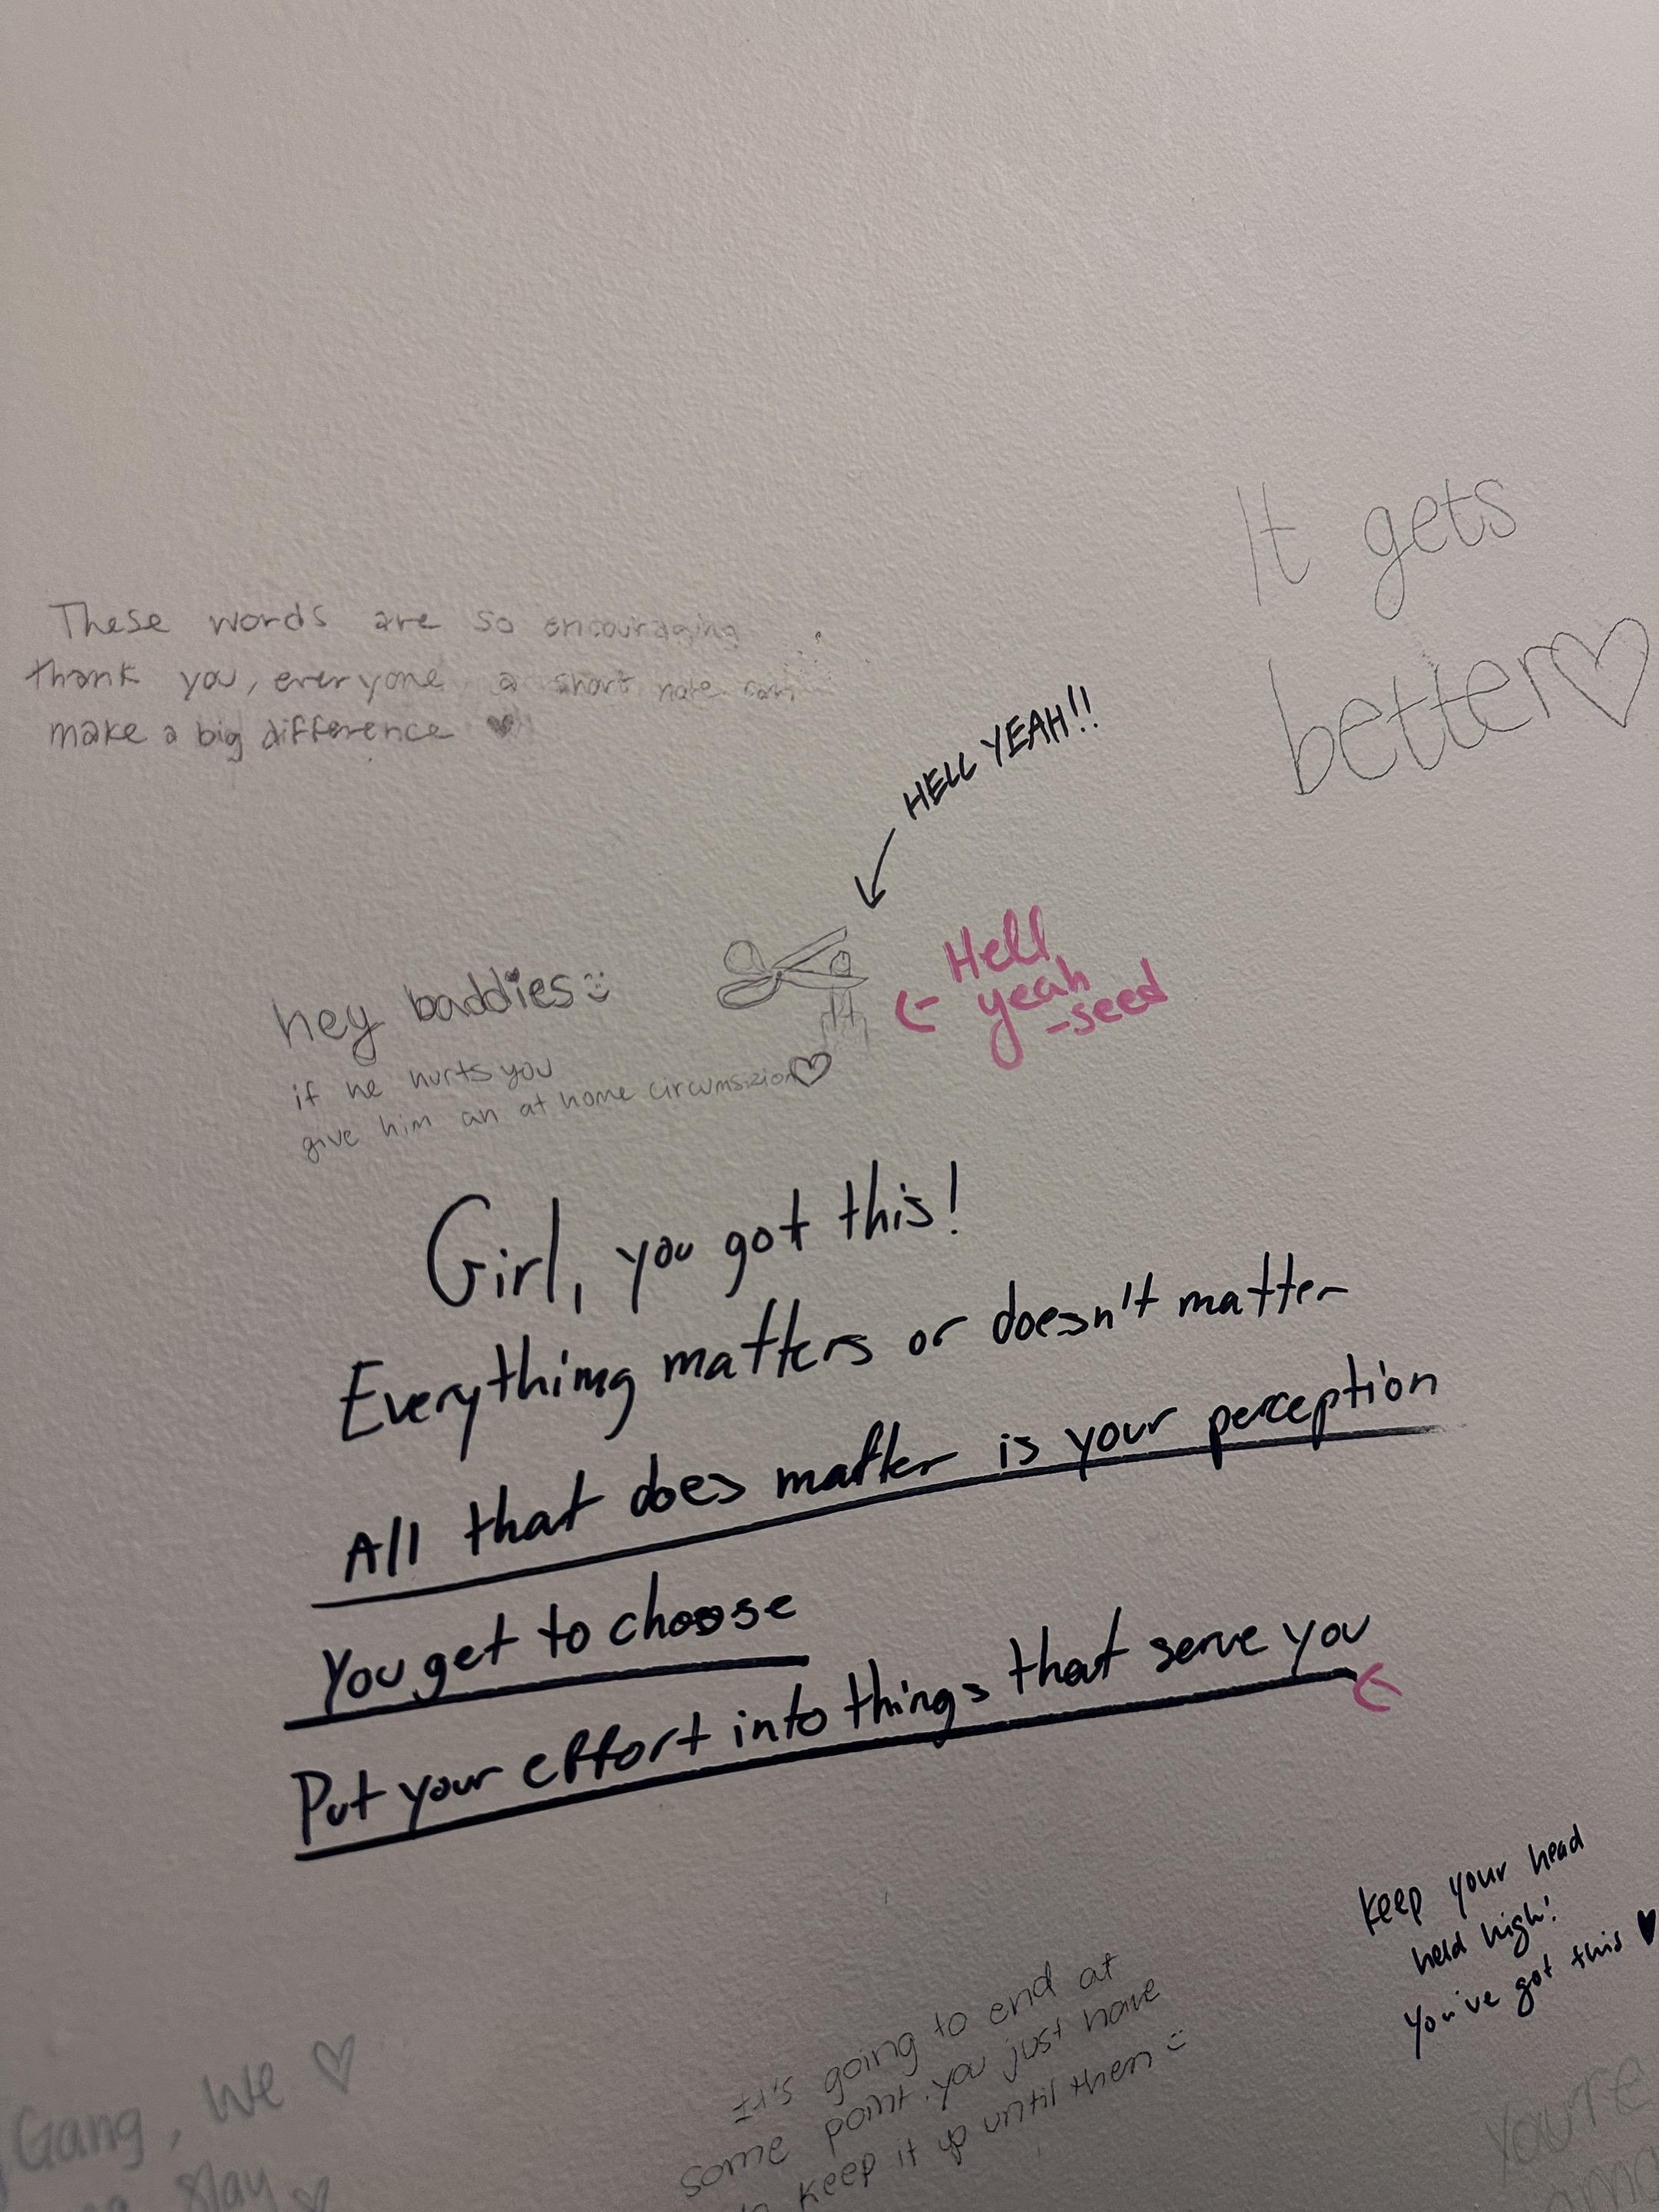 It gets
better
These words are so encouraging
thank you, everyone a short note can
make a big difference
HELL YEAH!!
Hell
yeah
-seed
hey baddies
if he hurts you
give him an at home circumsizion
Girl, you got this!
Everything matters or doesn't matter
All that does matter is your perception
You get to choose
Put your effort into things that serve you
keep your head
held high!
You've got this
It's going to end at
some point. you just have
to keep it up until then
Gang, We
Slay
You're